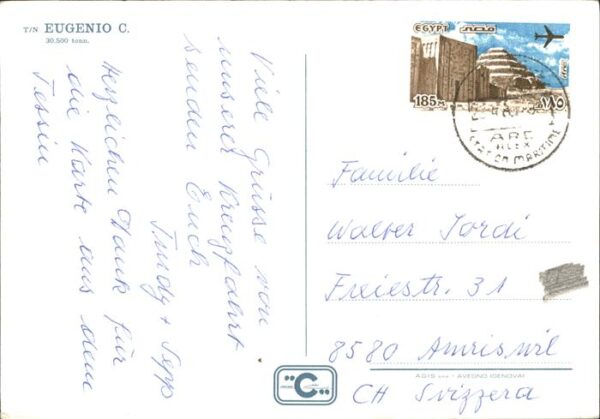 T/N EUGENIO C.
30.500 tonn.
Viele Grüsse von
unserer Kreuzfahrt
senden Euch
Trudy + Sepp
Herzlichen Dank für
die Karte aus dem
Tessin
EGYPT مصر
185M ١٨٥
ARE
ALEX
STATION MARITIME
Familie
Walter Jordi
Freiestr. 31
8580 Amriswil
CH Svizzera
C
AGIS s.n.c. - AVEGNO (GENOVA)